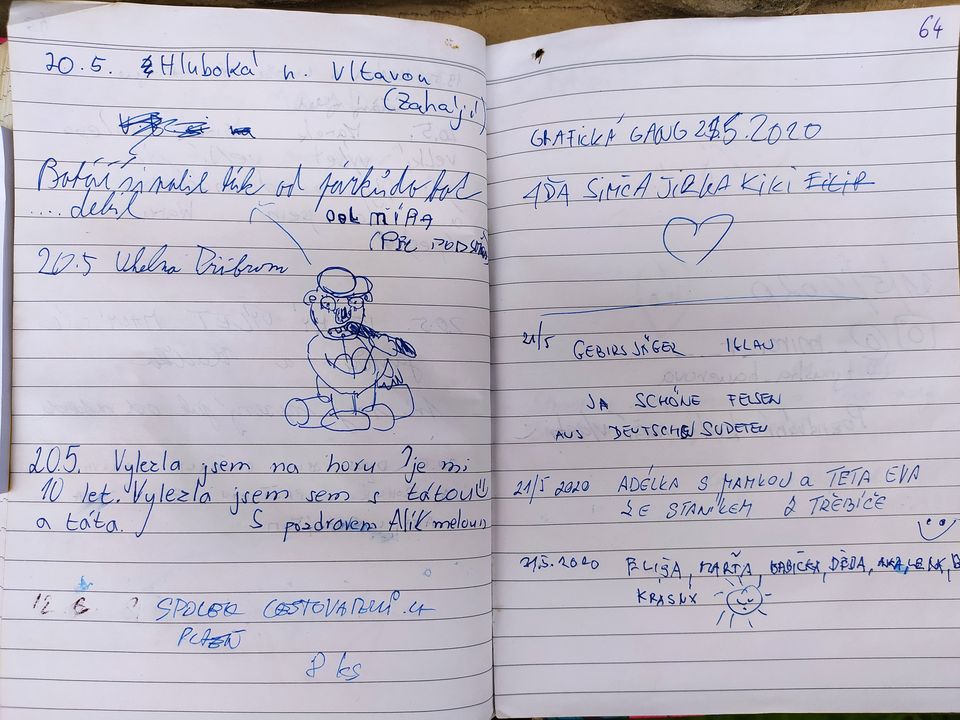 20.5. Hluboká n. Vltavou
(Zahájí)
Boťáš si natil tak od párků do bot
.... debil
od MÍRA
(PEC POD
20.5 Uhelna Příbram
20.5. Vylezla jsem na horu je mi
10 let. Vylezla jsem sem s tátou
a táta. S pozdravem Alík meloun
12 6
SPOLEK CESTOVATELŮ
PLZEŇ
8 ks
64
GRAFICKÁ GANG 21.5.2020
AĎA SIMČA JIRKA KIKI FILIP
21/5 GEBIRSJÄGER IGLAU
JA SCHÖNE FELSEN
AUS DEUTSCHEN SUDETEN
21/5 2020 ADÉLKA S MAMKOU a TETA EVA
ZE STANÍKEM Z TŘEBÍČE
21.5.2020 ELIŠA, MARŤA, BABIČKA, DĚDA,
KRÁSNÝ